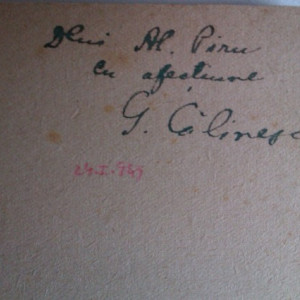 Dlui Al. Piru
cu afecțiune
G. Călinesc
24.I.949